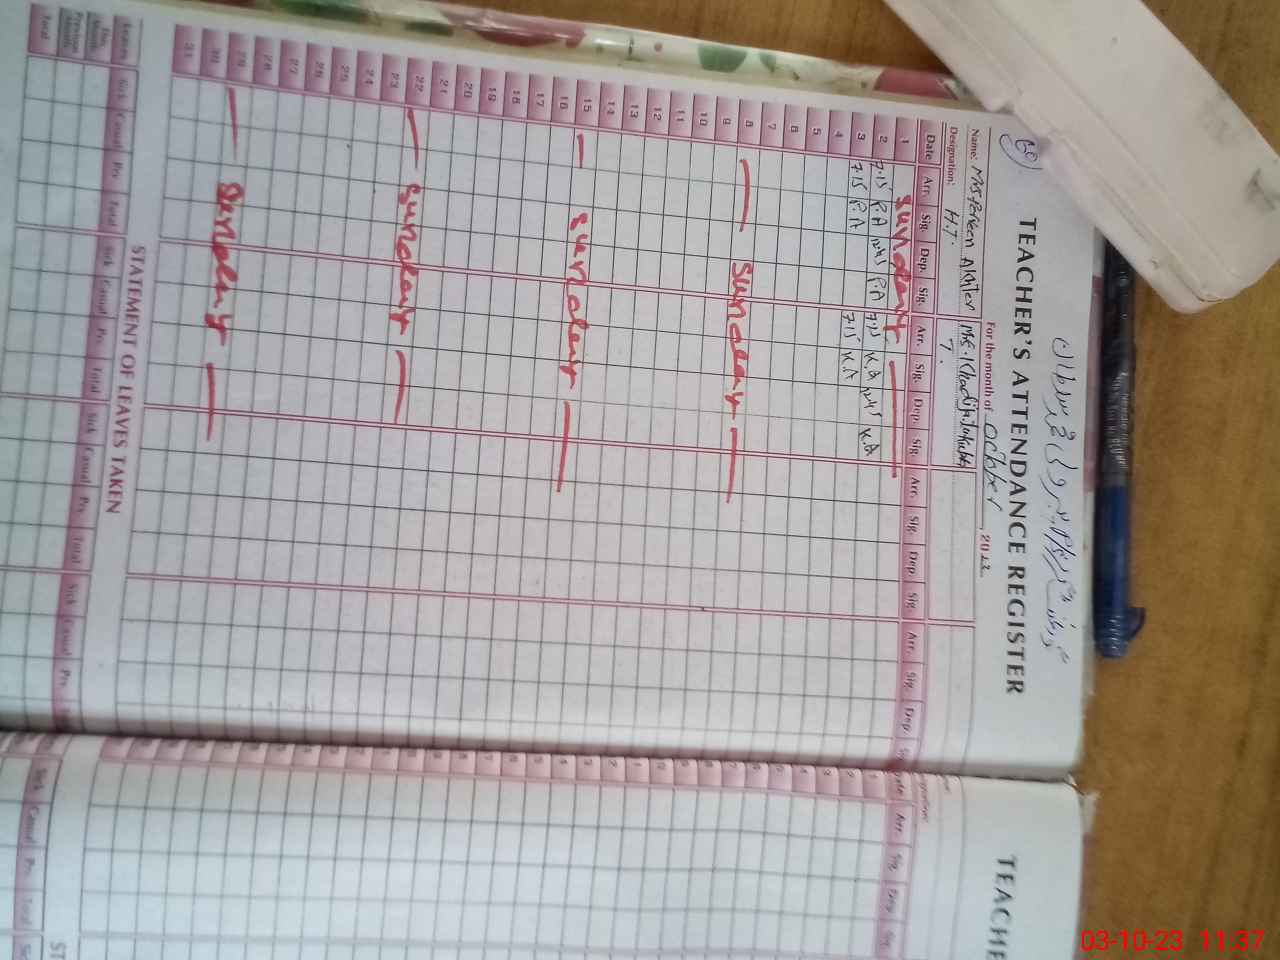 60
TEACHER'S ATTENDANCE REGISTER
For the month of October, 2023
Name: Mrs. Perveen Akhter
Designation: H.T. T.
Date Arr. Sig. Dep. Sig. Arr. Sig. Dep. Sig. Arr. Sig. Dep. Sig. Arr. Sig. Dep.
1 Sunday
2 7.15 P.A 12:45 P.A 7.15 K.A 12:45 K.A
3 7.15 P.A 7.15 K.A
4
5
6
7
8 Sunday
9
10
11
12
13
14
15 Sunday
16
17
18
19
20
21
22 Sunday
23
24
25
26
27
28
29 Sunday
30
31
STATEMENT OF LEAVES TAKEN
Leaves Sick Casual Prv. Total Sick Casual Prv. Total Sick Casual Prv. Total Sick Casual Prv.
This Month
Previous Month
Total
TEACHE
Arr. Sig. Dep. Sig.
Sick Casual Prv. Total
ST
03-10-23 11:37